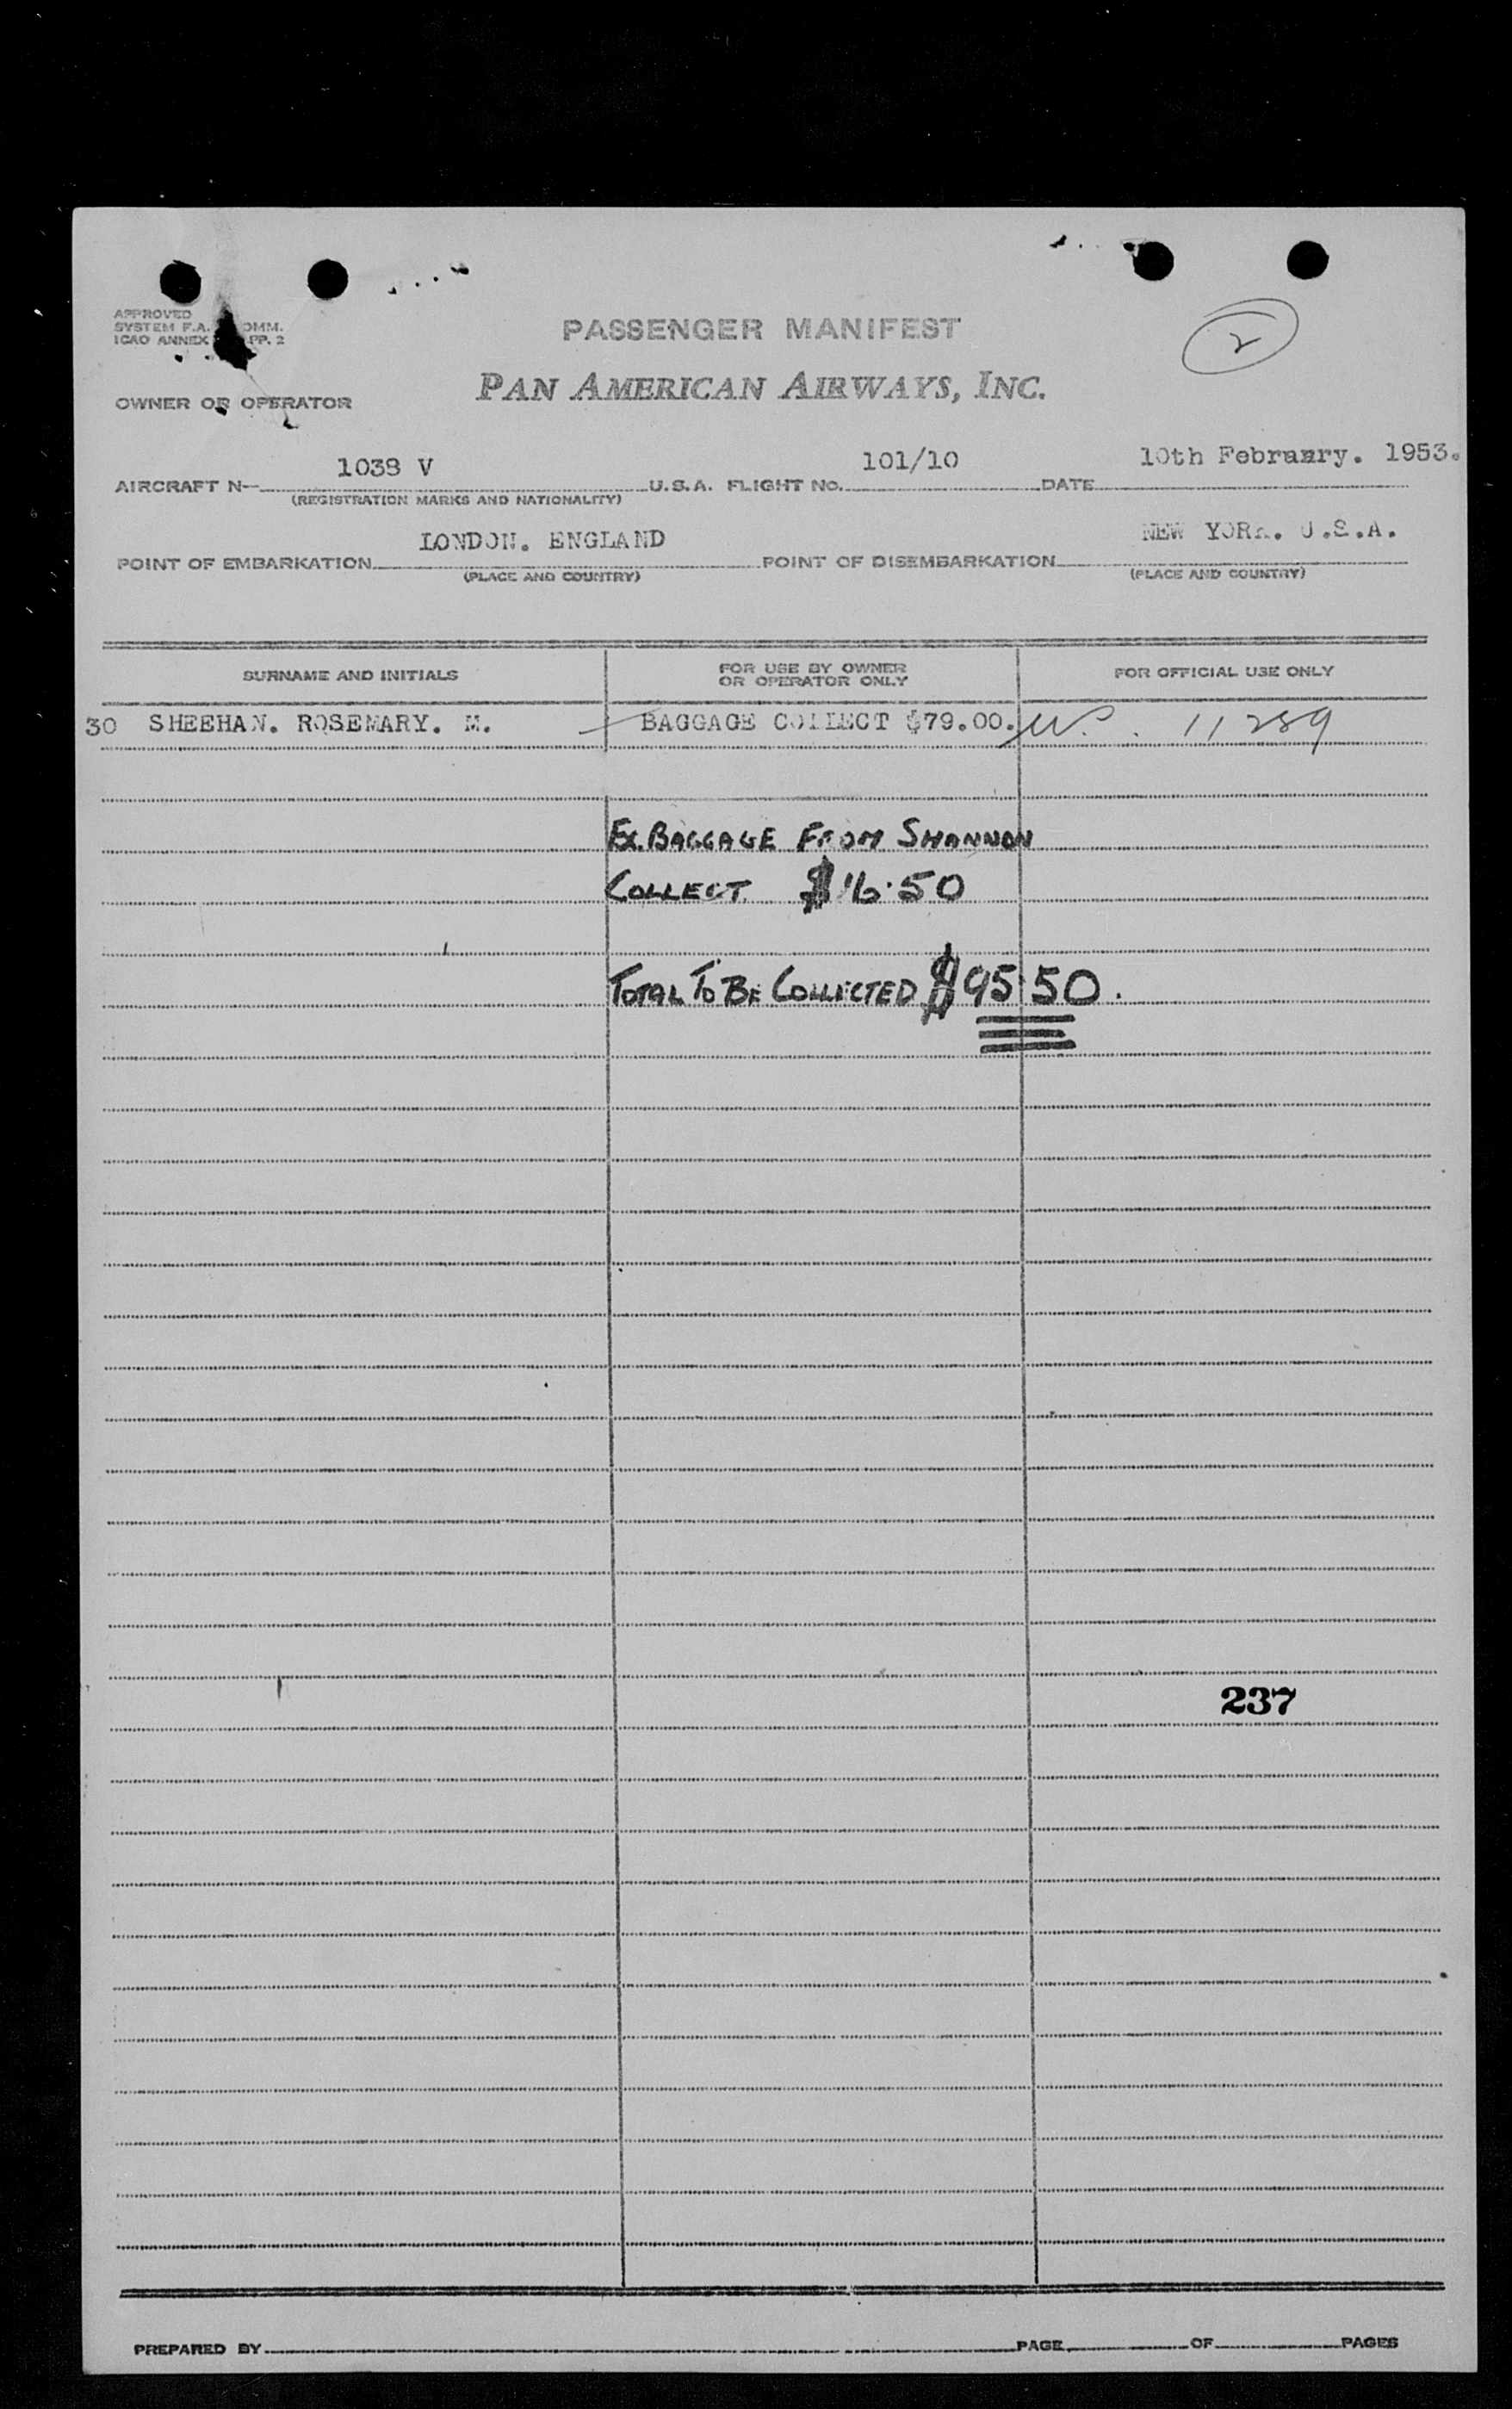 APPROVED
SYSTEM F.A. OMM.
ICAO ANNEX PP. 2
PASSENGER MANIFEST
2
OWNER OR OPERATOR
PAN AMERICAN AIRWAYS, INC.
AIRCRAFT N— 1038 V U.S.A. FLIGHT NO. 101/10 DATE 10th February. 1953.
(REGISTRATION MARKS AND NATIONALITY)
POINT OF EMBARKATION LONDON. ENGLAND POINT OF DISEMBARKATION NEW YORK. U.S.A.
(PLACE AND COUNTRY) (PLACE AND COUNTRY)
SURNAME AND INITIALS FOR USE BY OWNER OR OPERATOR ONLY FOR OFFICIAL USE ONLY
30 SHEEHAN. ROSEMARY. M. BAGGAGE COLLECT $79.00. 11289
EX. BAGGAGE FROM SHANNON
COLLECT $16.50
TOTAL TO BE COLLECTED $95.50.
237
PREPARED BY PAGE OF PAGES